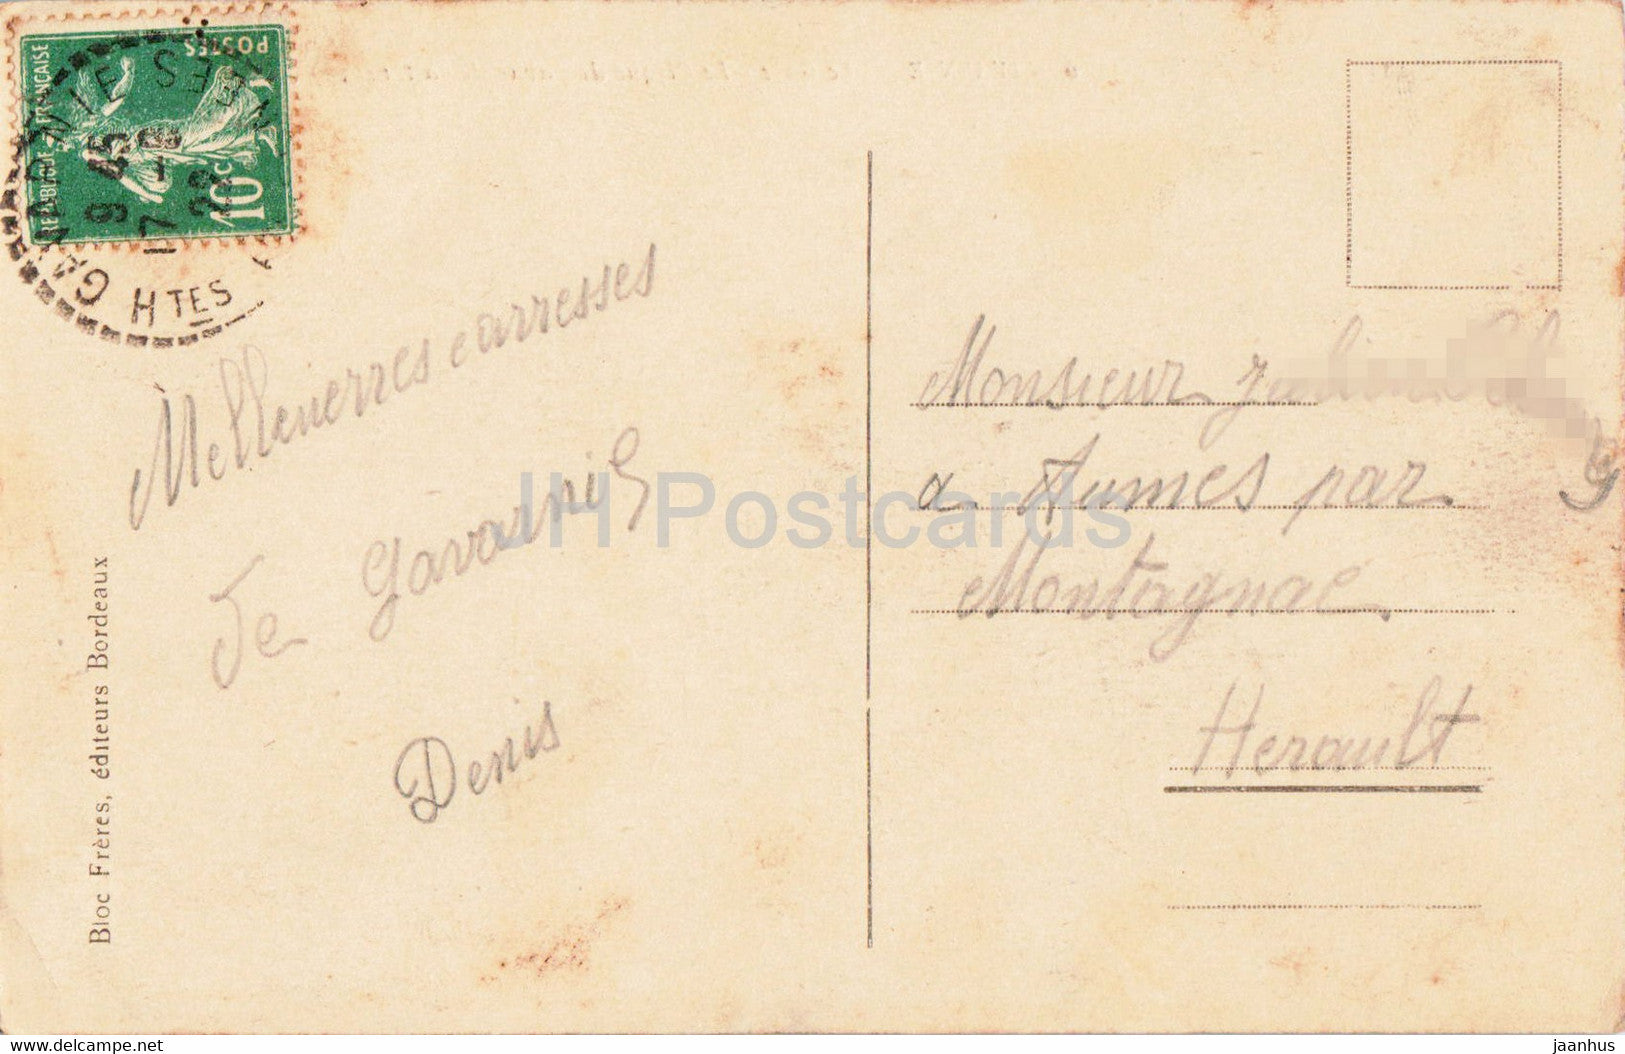 POSTES
REPUBLIQUE FRANÇAISE
10c
GAVARNIE
9 45
17 - 8
22
HTES
Mellenerres carresses
De Gavarnie
Denis
Bloc Frères, éditeurs Bordeaux
Monsieur
a Aumes par
Montagnac
Herault
JH Postcards
www.delcampe.net
jaanhus